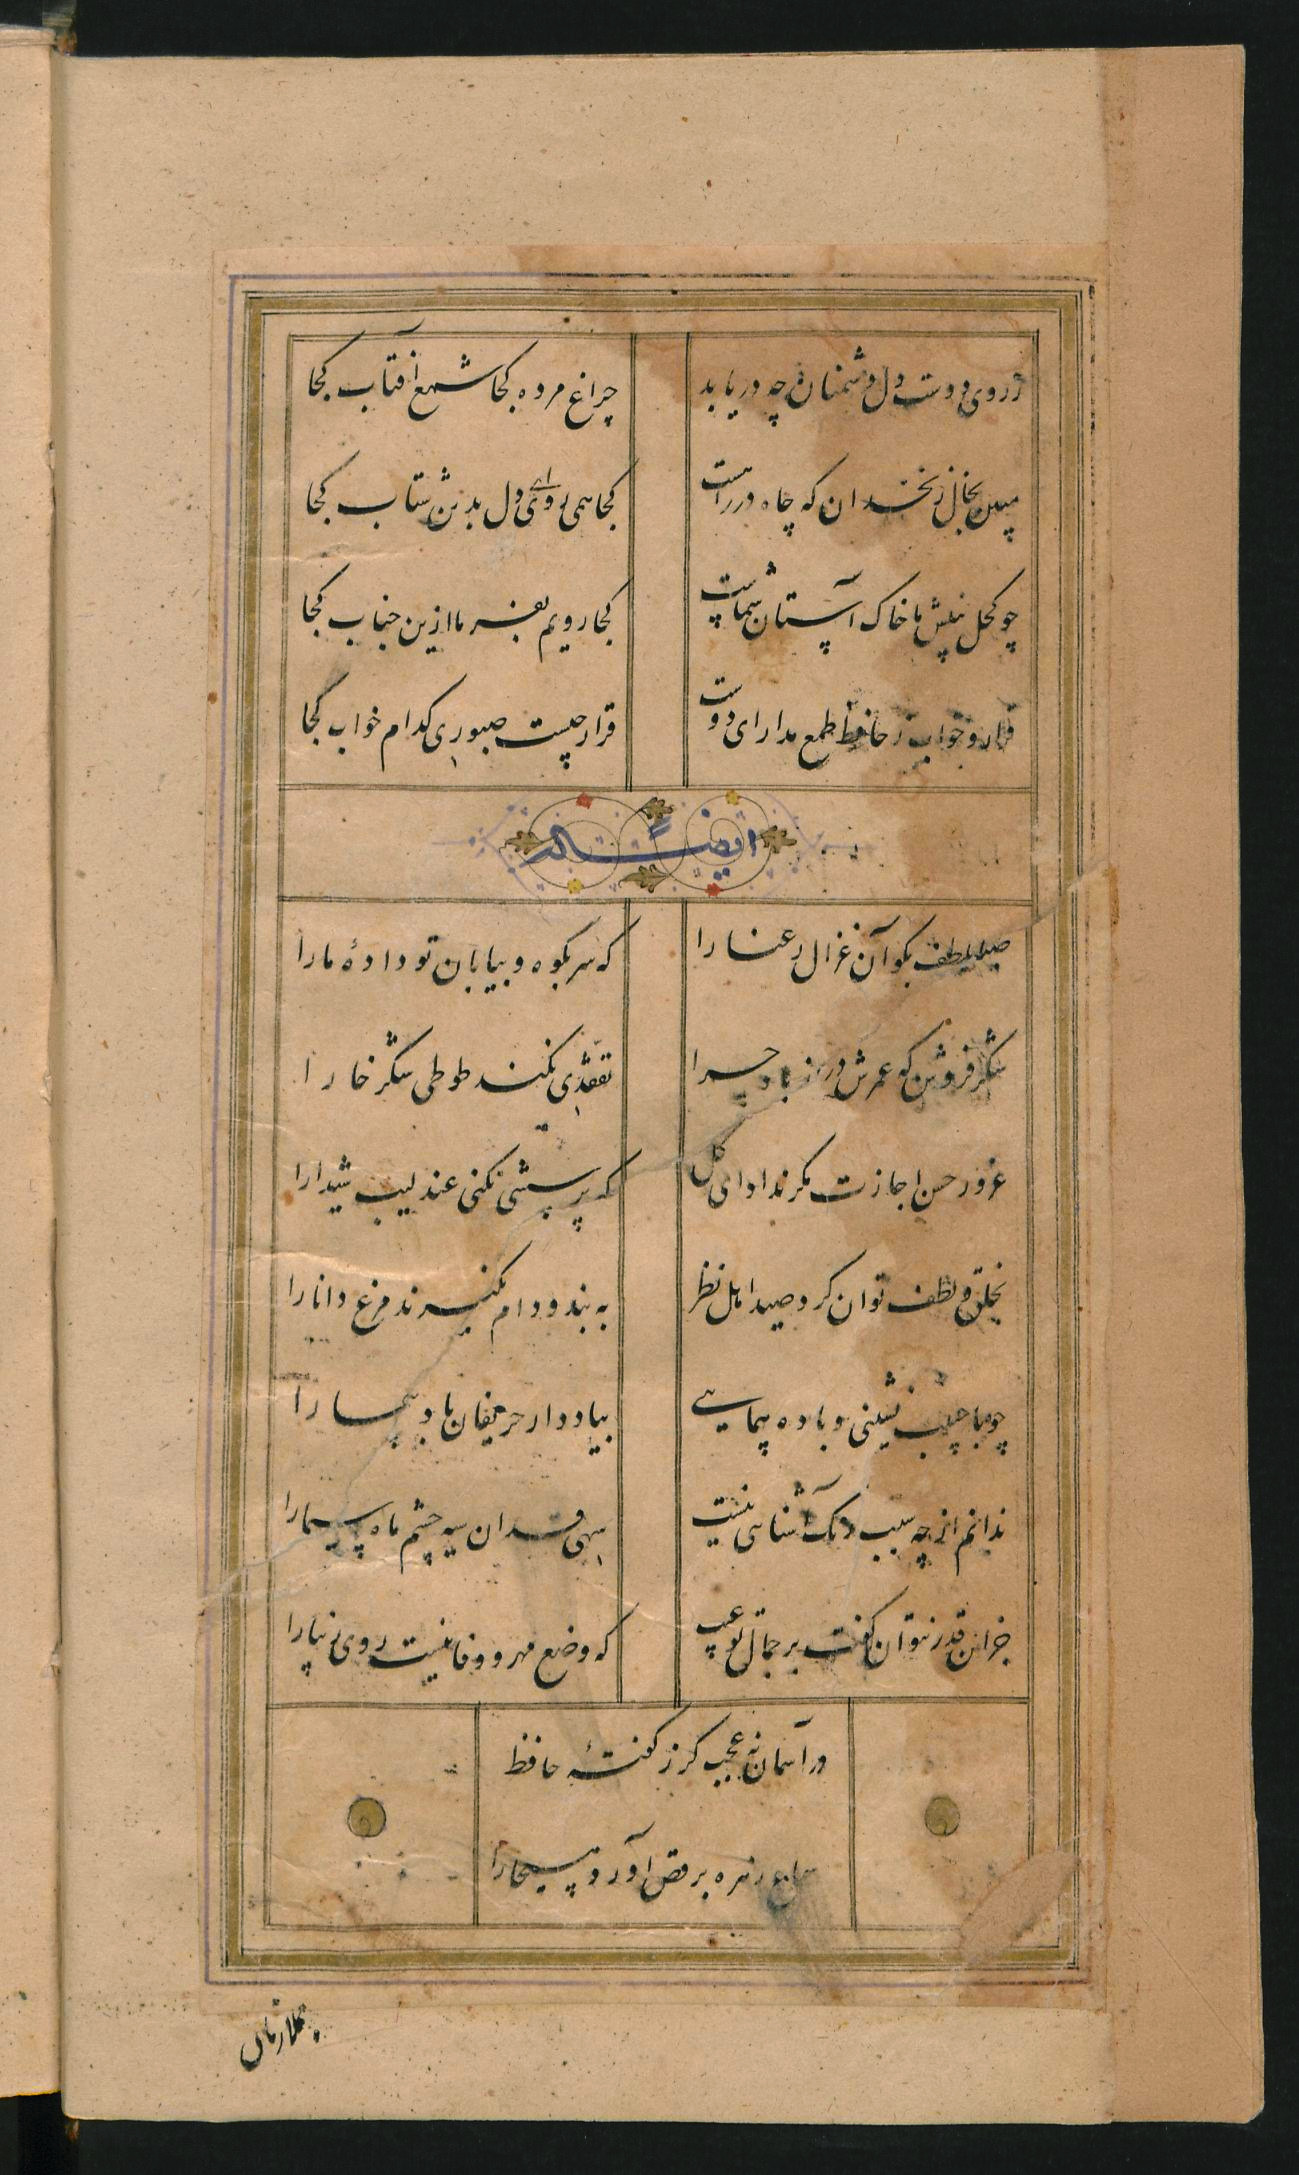 ز روی دوست دل دشمنان چه دریابد
چراغ مرده کجا شمع آفتاب کجا
مبین بخال زنخدان که چاه در راهست
کجا همی روی ای دل بدین شتاب کجا
چو کحل بینش ما خاک آستان شماست
کجا رویم بفرما ازین جناب کجا
قرار و خواب ز حافظ طمع مدار ای دوست
قرار چیست صبوری کدام خواب کجا
ایضاً له
صبا بلطف بکو آن غزال رعنا را
که سر بکوه و بیابان تو دادهٔ ما را
شکر فروش که عمرش دراز باد چرا
تفقدی نکند طوطی شکر خا را
غرور حسن اجازت مکر نداد ای کل
که پرسشی نکنی عندلیب شیدا را
بخلق و لطف توان کرد صید اهل نظر
به بند و دام نکیرند مرغ دانا را
چو با حبیب نشینی و باده پیمایی
بیاد دار حریفان باد پیما را
ندانم از چه سبب رنک آشنایی نیست
سهی قدان سیه چشم ماه سیما را
جز این قدر نتوان کفت بر جمال تو عیب
که وضع مهر و وفا نیست روی زیبا را
در آسمان نه عجب کر ز کفتهٔ حافظ
سماع زهره برقص آورد مسیحا را